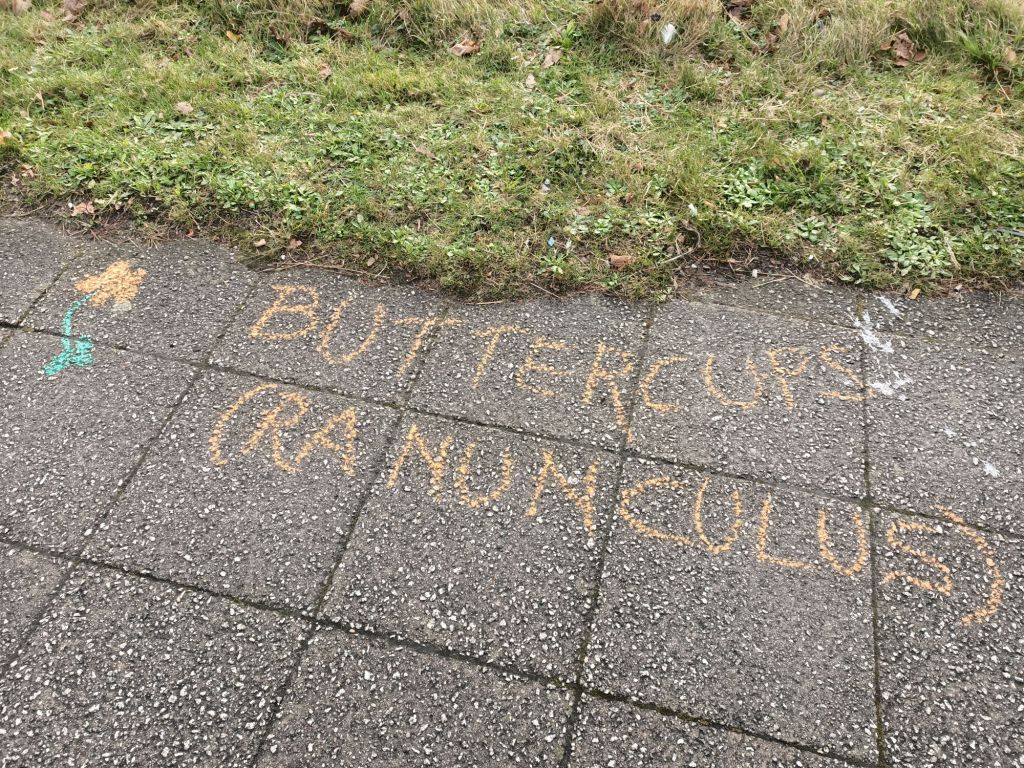 BUTTERCUPS
(RANUNCULUS)